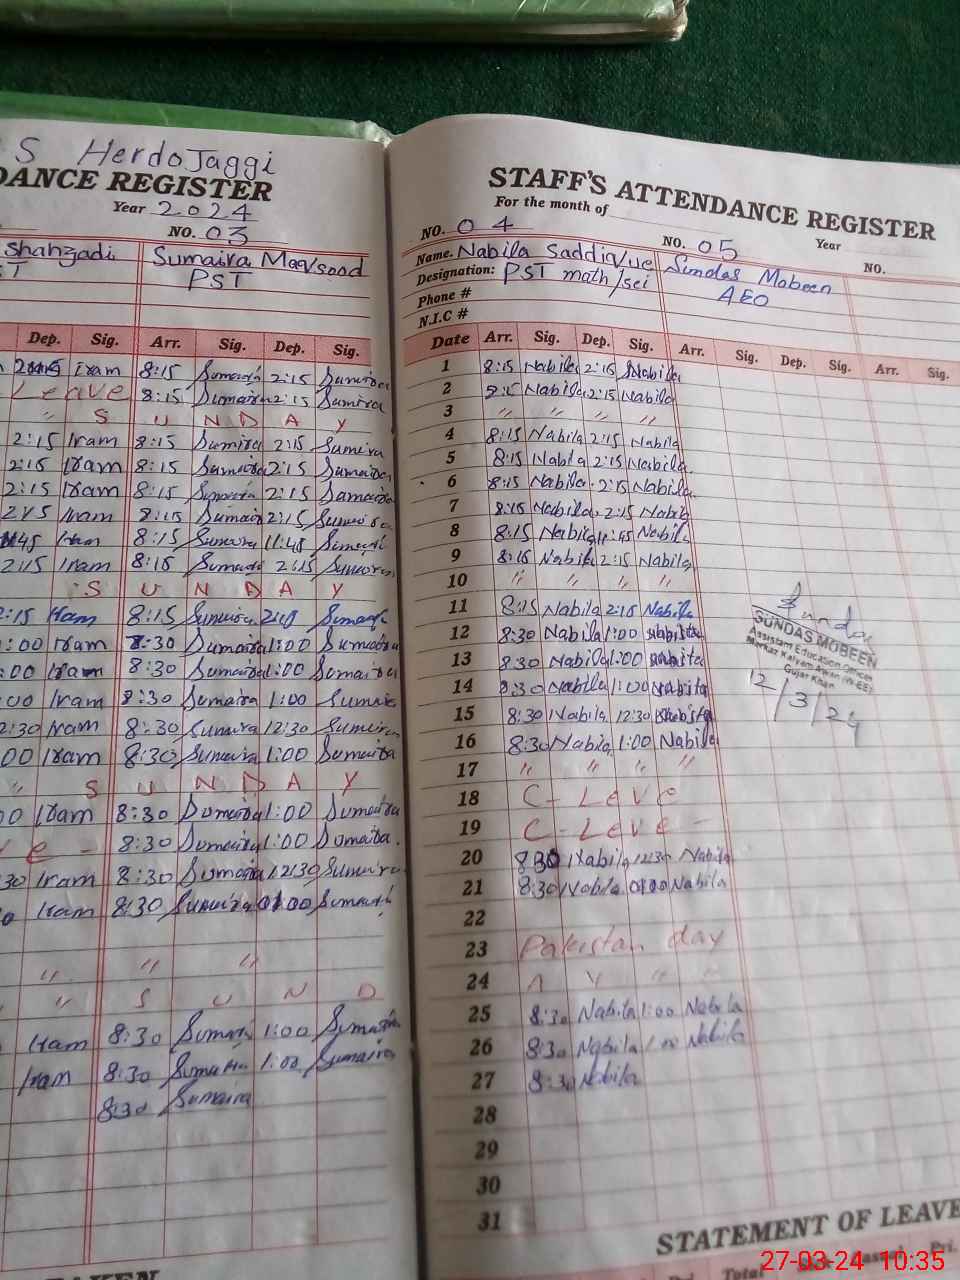 S HerdoJaggi
DANCE REGISTER
Year 2024
NO. 03
Shahzadi Sumaira Maqsood
ST PST
Dep. Sig. Arr. Sig. Dep. Sig.
Iram 8:15 Sumaira 2:15 Sumaira
Leave 8:15 Sumaira 2:15 Sumira
" S U N D A Y
2:15 Iram 8:15 Sumira 2:15 Sumira
2:15 Iram 8:15 Sumaira 2:15 Sumaira
2:15 Iram 8:15 Sumaira 2:15 Sumaira
2:15 Iram 8:15 Sumaira 2:15 Sumaira
:45 Iram 8:15 Sumaira 11:45 Sumaira
2:15 Iram 8:15 Sumaira 2:15 Sumaira
S U N D A Y
2:15 Iram 8:15 Sumaira Sumaira
:00 Iram 8:30 Sumaira 1:00 Sumaira
:00 Iram 8:30 Sumaira 1:00 Sumaira
:00 Iram 8:30 Sumaira 1:00 Sumaira
2:30 Iram 8:30 Sumaira 12:30 Sumaira
00 Iram 8:30 Sumaira 1:00 Sumaira
" S U N D A Y
0 Iram 8:30 Sumaira 1:00 Sumaira
v e - 8:30 Sumaira 1:00 Sumaira
30 Iram 8:30 Sumaira 12:30 Sumaira
0 Iram 8:30 Sumaira 01:00 Sumaira
" " "
" S U N D
Iram 8:30 Sumaira 1:00 Sumaira
Iram 8:30 Sumaira 1:00 Sumaira
8:30 Sumaira
STAFF'S ATTENDANCE REGISTER
For the month of
Year
NO. 04 NO. 05 NO.
Name. Nabila Saddique Sundas Mobeen
Designation: PST math/sci AEO
Phone #
N.I.C #
Date Arr. Sig. Dep. Sig. Arr. Sig. Dep. Sig. Arr. Sig.
1 8:15 Nabila 2:15 Nabila
2 8:15 Nabila 2:15 Nabila
3 " " " "
4 8:15 Nabila 2:15 Nabila
5 8:15 Nabila 2:15 Nabila
6 8:15 Nabila 2:15 Nabila
7 8:15 Nabila 2:15 Nabila
8 8:15 Nabila 11:45 Nabila
9 8:15 Nabila 2:15 Nabila
10 " " " "
11 8:15 Nabila 2:15 Nabila
12 8:30 Nabila 1:00 Nabila
13 8:30 Nabila 1:00 Nabila
14 8:30 Nabila 1:00 Nabila
15 8:30 Nabila 12:30 Nabila
16 8:30 Nabila 1:00 Nabila
17 " " " "
18 C - Leve
19 C - Leve -
20 8:30 Nabila 12:30 Nabila
21 8:30 Nabila 01:00 Nabila
22
23 Pakistan day
24 A Y " "
25 8:30 Nabila 1:00 Nabila
26 8:30 Nabila 1:00 Nabila
27 8:30 Nabila
28
29
30
31
Sundas
SUNDAS MOBEEN
Assistant Education Officer
Markaz Kalyam Awan (W-EE)
Gujar Khan
12/3/24
STATEMENT OF LEAVE
Total
27-03-24 10:35